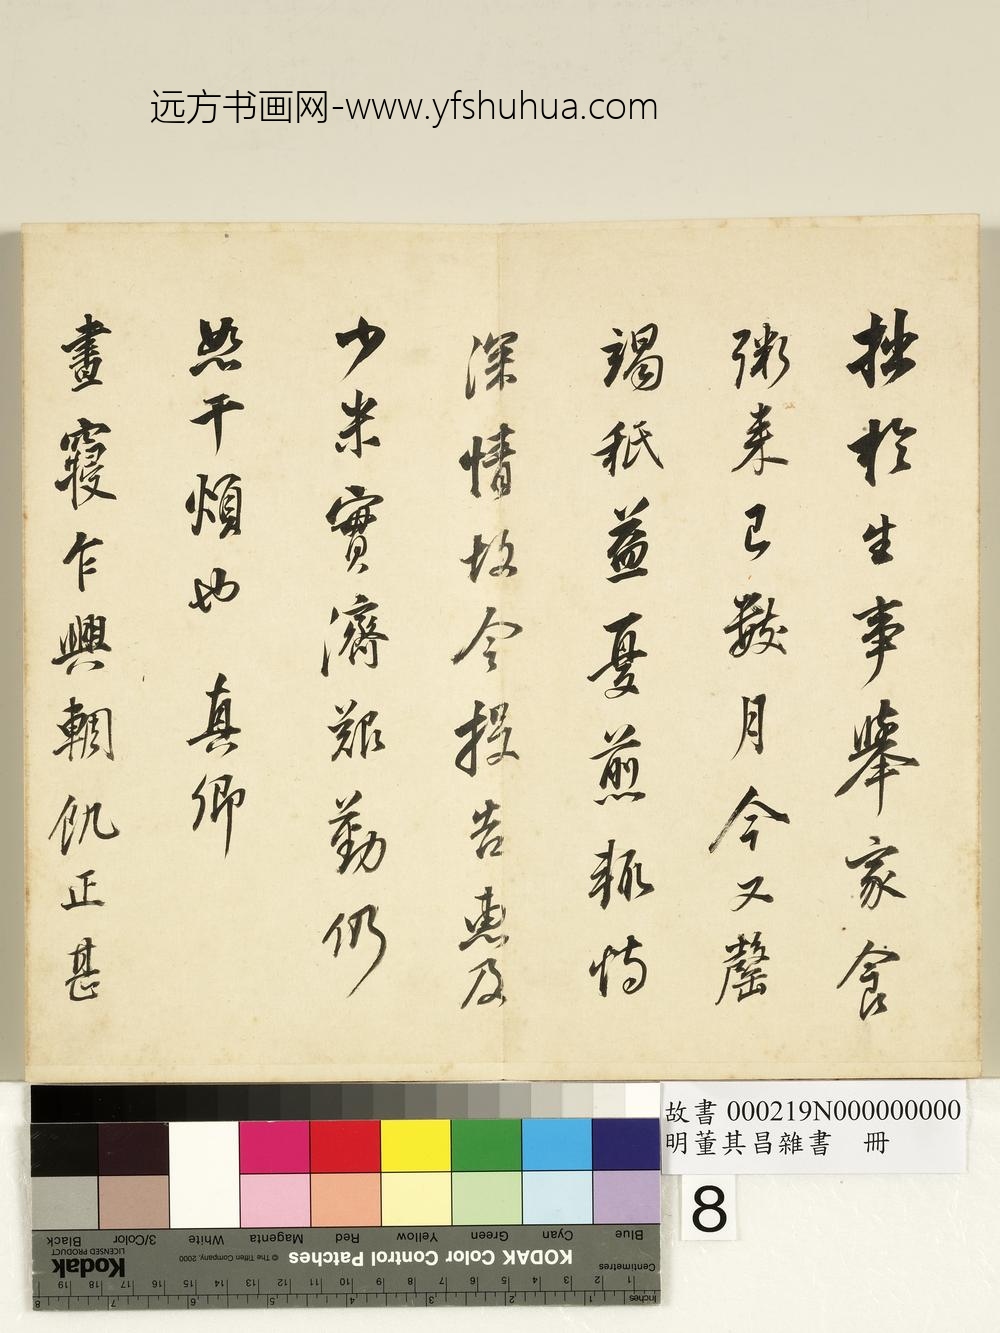 远方书画网-www.yfshuhua.com
拙於生事舉家食
粥来已數月今又罄
竭秖益憂煎輒恃
深情故令投告惠及
少米實濟艱勤仍
恕干煩也 真卿
晝寢乍興輖飢正甚
故書 000219N000000000
明董其昌雜書 冊
8
Blue Cyan Green Yellow Red Magenta White 3/Color Black
KODAK Color Control Patches
© The Tiffen Company, 2000
Kodak
LICENSED PRODUCT
Centimetres
1 2 3 4 5 6 7 8 9 10 11 12 13 14 15 16 17 18 19
Inches
1 2 3 4 5 6 7 8